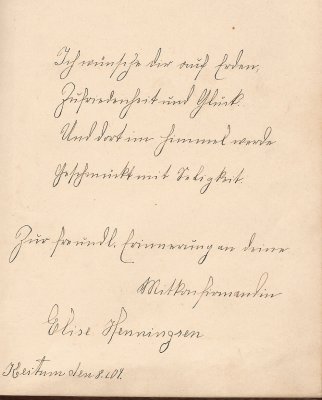 Ich wünsche dir auf Erden,
Zufriedenheit und Glück.
Und dort im Himmel werde
Geschmückt mit Seligkeit.
Zur freundl. Erinnerung an deine
Mitkonfirmandin
Elise Henningsen
Keitum den 8.